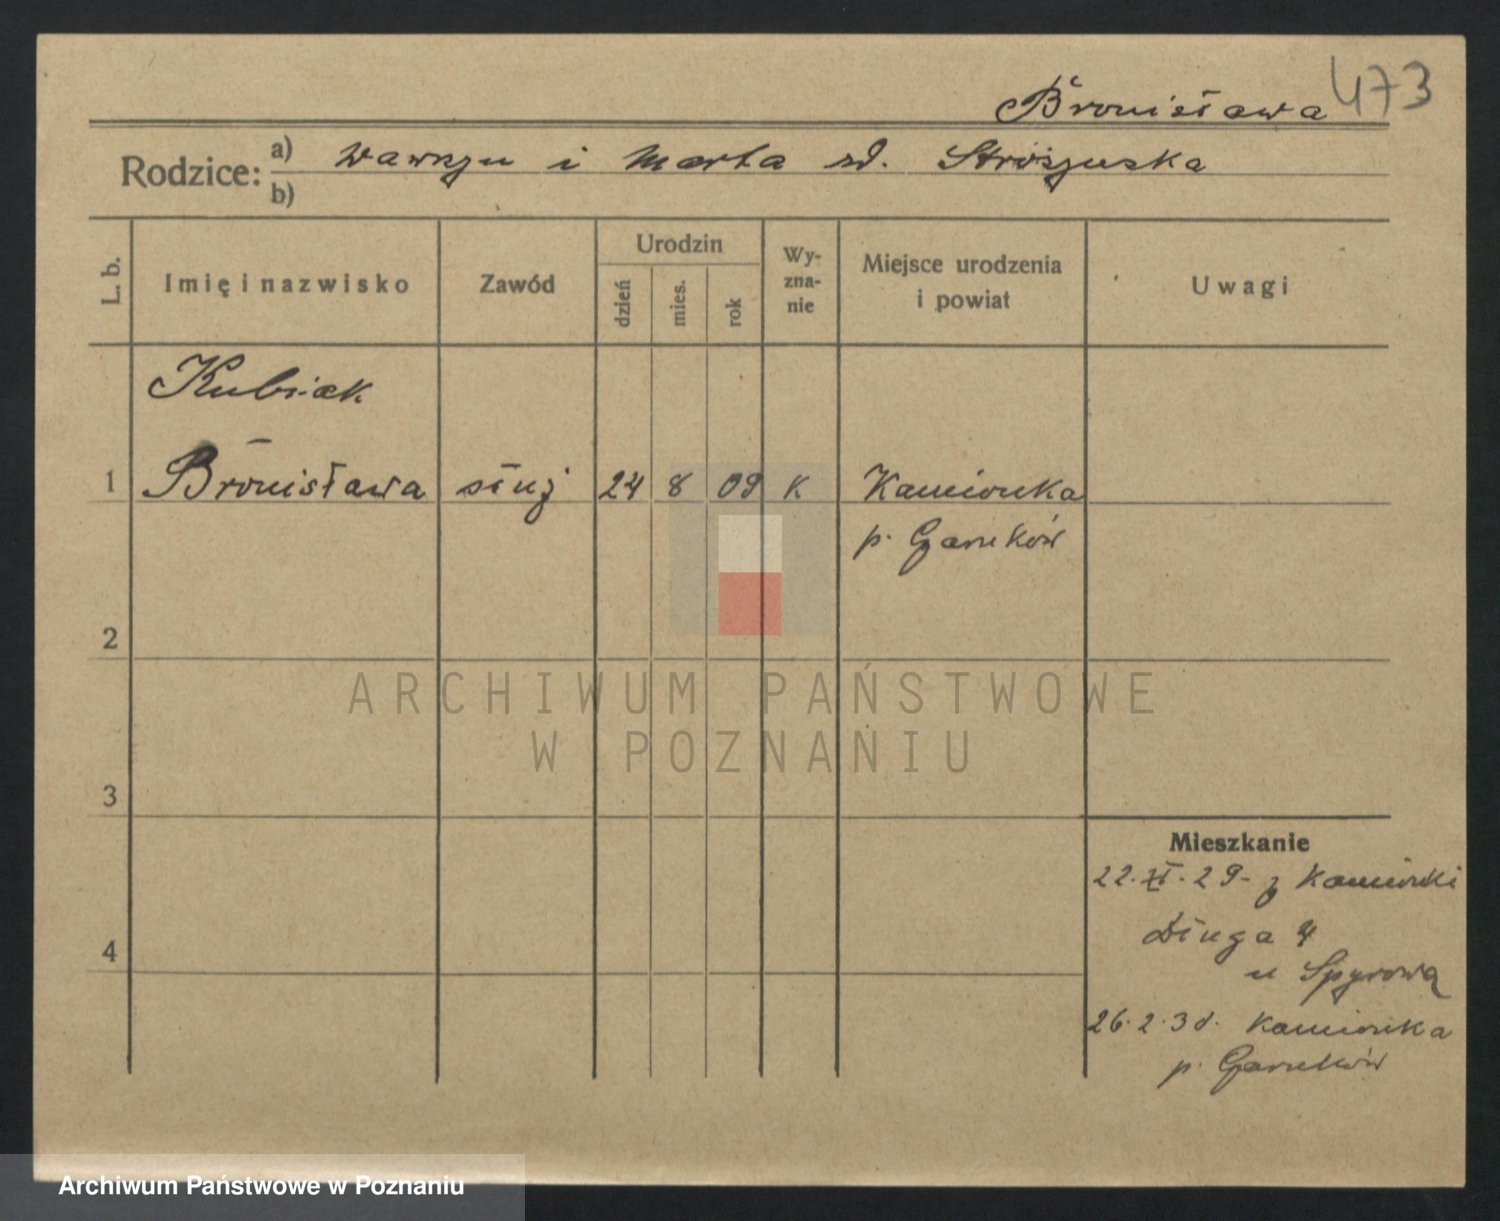 473
Bronisława
Rodzice:
a) Wawrzyn i Marta zd. Stróżynska
b)
L. b.
Imię i nazwisko
Zawód
Urodzin
dzień
mies.
rok
Wy-
zna-
nie
Miejsce urodzenia
i powiat
Uwagi
Kubiak
1 Bronisława służ 24 8 09 K Kamionka
p. Czarnków
2
3
4
Mieszkanie
22.XI.29- z Kamionki
Długa 4
u Spyrową
26.2.30. Kamionka
p. Czarnków
ARCHIWUM PAŃSTWOWE
W POZNANIU
Archiwum Państwowe w Poznaniu